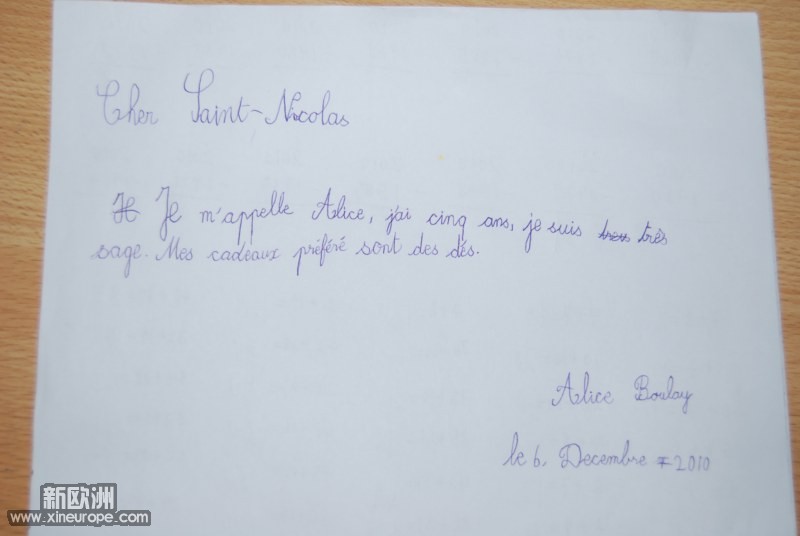 Cher Saint-Nicolas
Je m'appelle Alice, j'ai cinq ans, je suis très
sage. Mes cadeaux préféré sont des dés.
Alice Boulay
le 6. Decembre 2010
新欧洲
www.xineurope.com